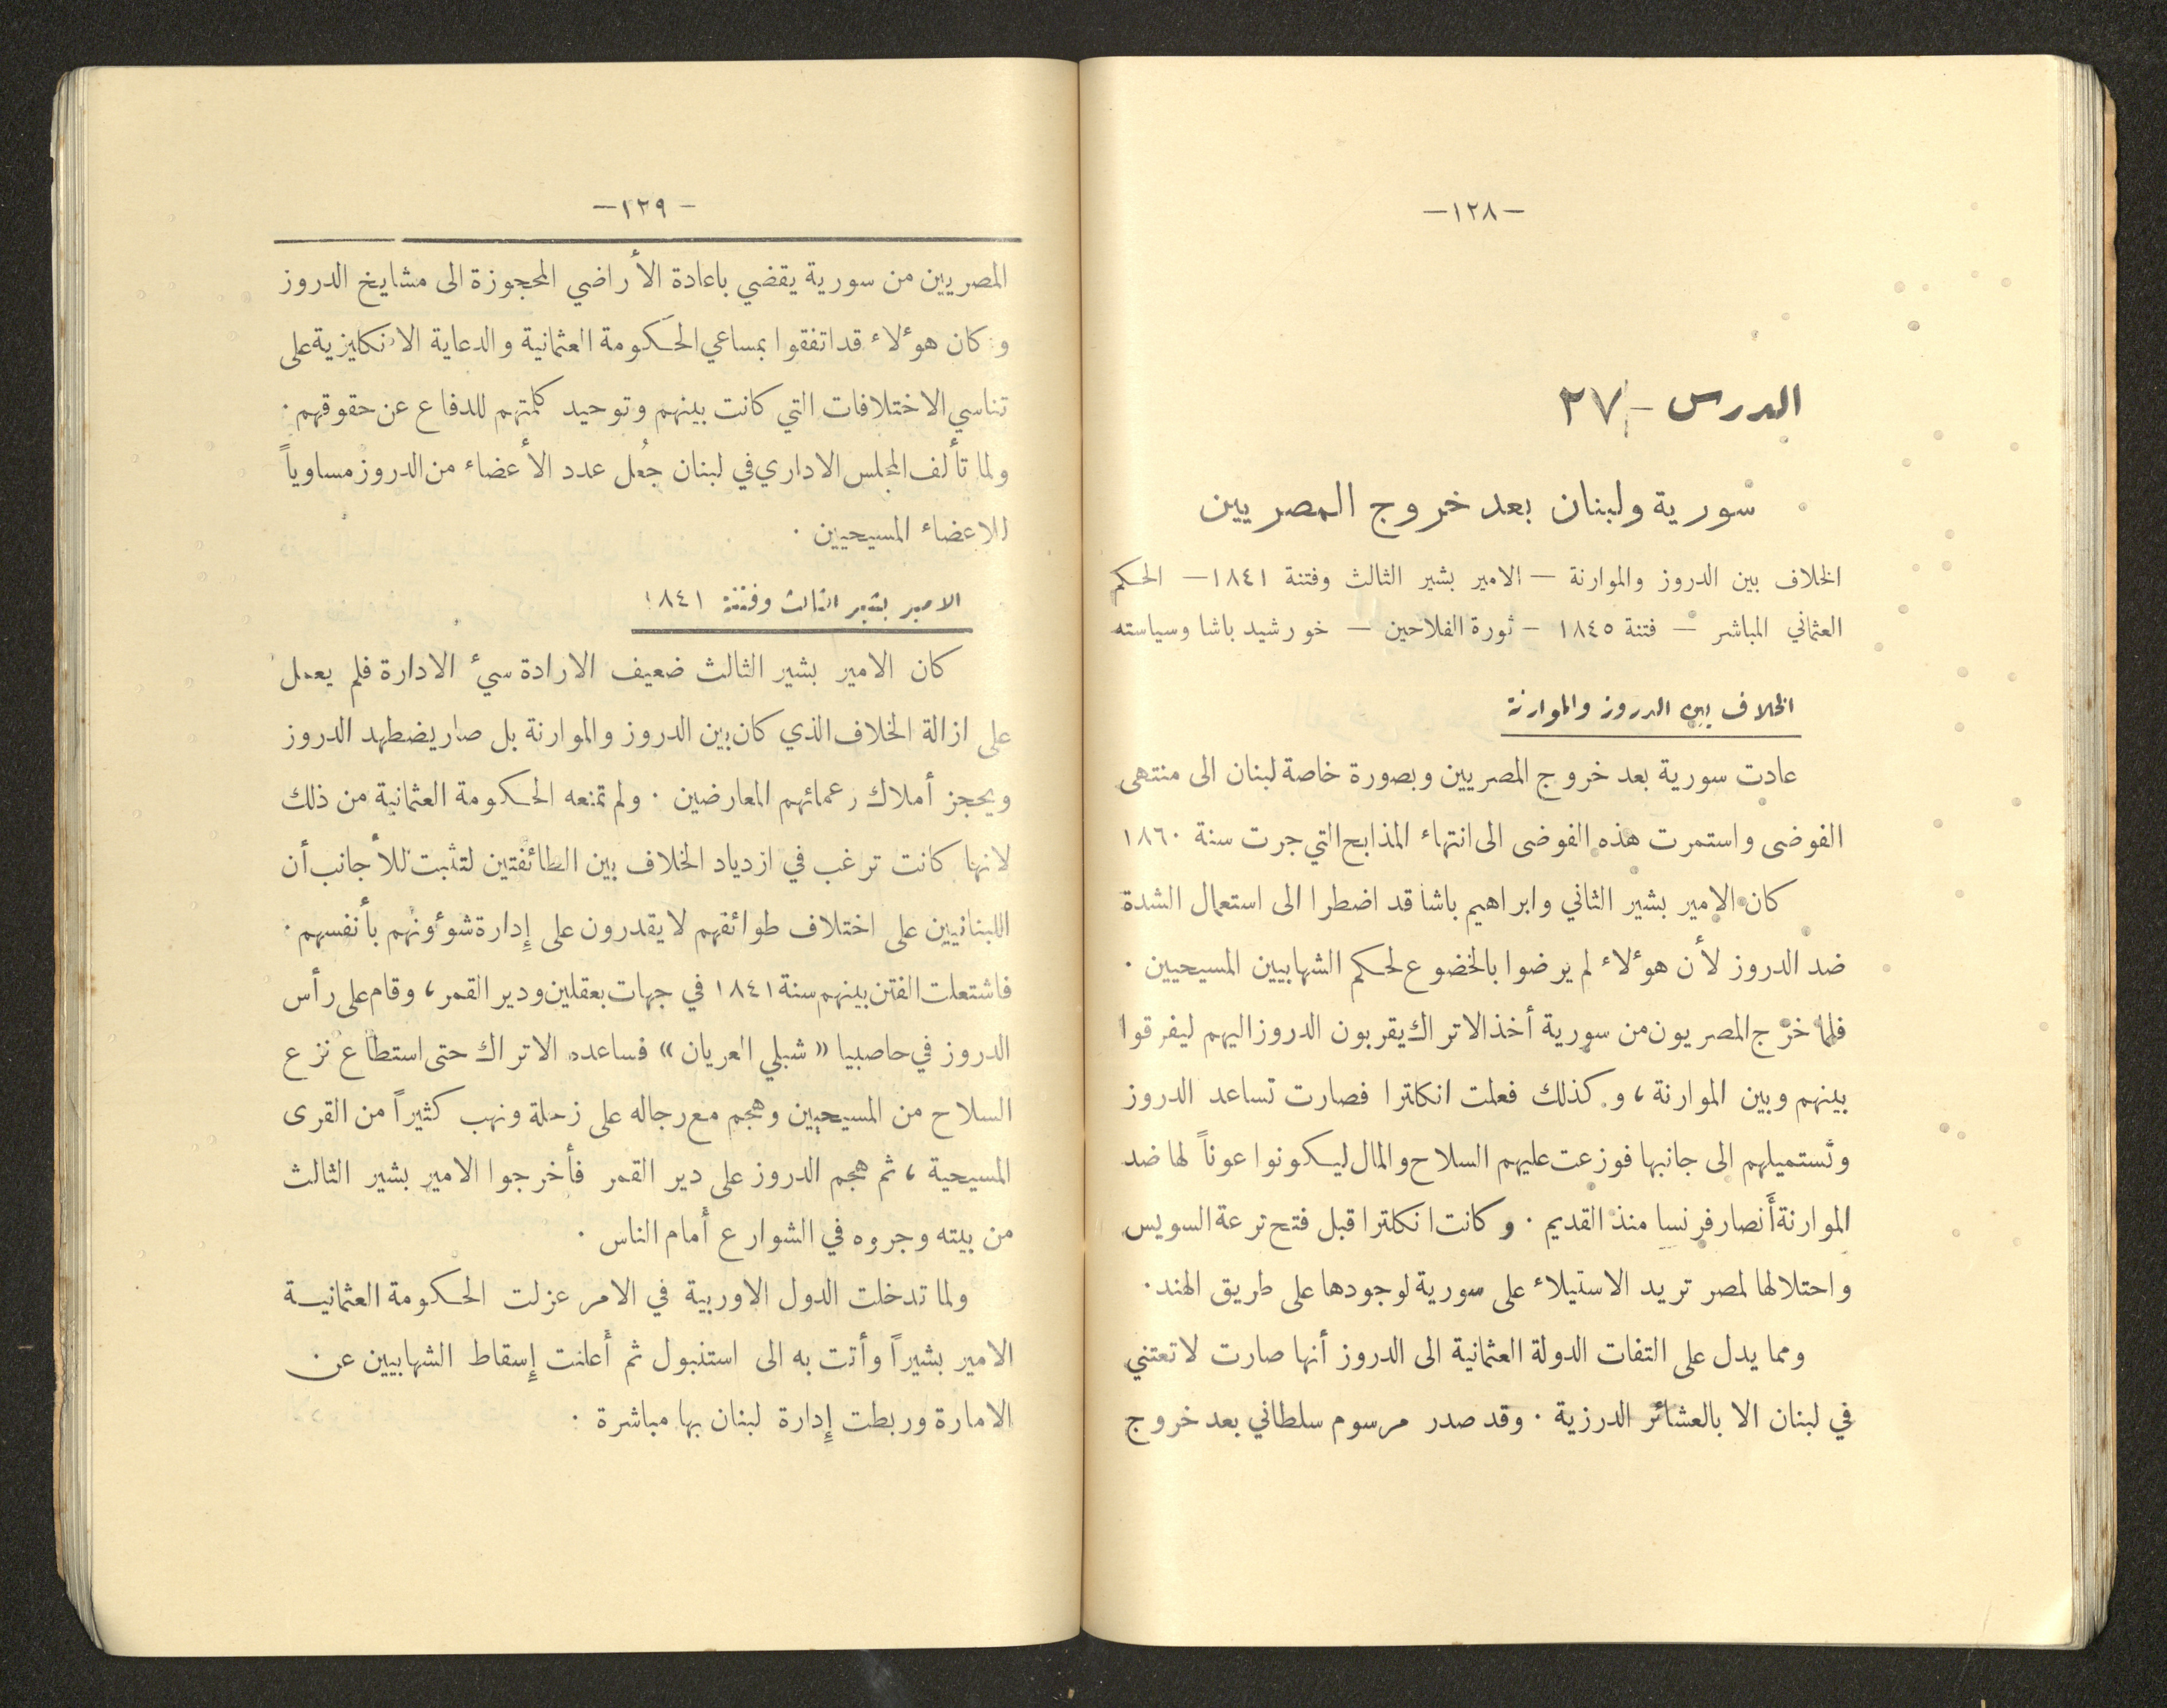 —١٢٨—
الدرس — ٢٧
سورية ولبنان بعد خروج المصريين
الخلاف بين الدروز والموارنة — الامير بشير الثالث وفتنة ١٨٤١ — الحكم
العثاني المباشر — فتنة ١٨٤٥ — ثورة الفلاحين — خورشيد باشا وسياسته
الخلاف بين الدروز والموارنة
عادت سورية بعد خروج المصريين وبصورة خاصة لبنان الى منتهى
الفوضى واستمرت هذه الفوضى الى انتهاء المذابح التي جرت سنة ١٨٦٠
كان الامير بشير الثاني وابراهيم باشا قد اضطرا الى استعمال الشدة
ضد الدروز لأن هؤلاء لم يرضوا بالخضوع لحكم الشهابيين المسيحيين .
فلما خرج المصريون من سورية أخذ الاتراك يقربون الدروز اليهم ليفرقوا
بينهم وبين الموارنة ، وكذلك فعلت انكلترا فصارت تساعد الدروز
وتستميلهم الى جانبها فوزعت عليهم السلاح والمال ليكونوا عوناً لها ضد
الموارنة أَنصار فرنسا منذ القديم . وكانت انكلترا قبل فتح ترعة السويس
واحتلالها لمصر تريد الاستيلاء على سورية لوجودها على طريق الهند .
ومما يدل على التفات الدولة العثمانية الى الدروز أنها صارت لا تعتني
في لبنان الا بالعشائر الدرزية . وقد صدر مرسوم سلطاني بعد خروج
—١٢٩—
المصريين من سورية يقضي باعادة الأراضي المحجوزة الى مشايخ الدروز
وكان هؤلاء قد اتفقوا بمساعي الحكومة العثمانية والدعاية الانكليزية على
تناسي الاختلافات التي كانت بينهم وتوحيد كلمتهم للدفاع عن حقوقهم .
ولما تألف المجلس الاداري في لبنان جُعل عدد الأعضاء من الدروز مساوياً
للاعضاء المسيحيين .
الامير بشير الثالث وفتنة ١٨٤١
كان الامير بشير الثالث ضعيف الارادة سيء الادارة فلم يعمل
على ازالة الخلاف الذي كان بين الدروز والموارنة بل صار يضطهد الدروز
ويحجز أملاك زعمائهم المعارضين . ولم تمنعه الحكومة العثمانية من ذلك
لانها كانت ترغب في ازدياد الخلاف بين الطائفتين لتثبت للأجانب أن
اللبنانيين على اختلاف طوائفهم لا يقدرون على إدارة شؤونهم بأنفسهم .
فاشتعلت الفتن بينهم سنة ١٨٤١ في جهات بعقلين ودير القمر ، وقام على رأس
الدروز في حاصبيا « شبلي العريان » فساعده الاتراك حتى استطاع نزع
السلاح من المسيحيين وهجم مع رجاله على زحلة ونهب كثيراً من القرى
المسيحية ، ثم هجم الدروز على دير القمر فأخرجوا الامير بشير الثالث
من بيته وجروه في الشوارع أَمام الناس .
ولما تدخلت الدول الاوربية في الامر عزلت الحكومة العثمانية
الامير بشيراً وأتت به الى استنبول ثم أَعلنت إِسقاط الشهابيين عن
الامارة وربطت إِدارة لبنان بها مباشرة .